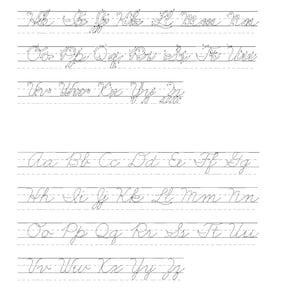 Hh Ii Jj Kk Ll Mm Nn
Oo Pp Qq Rr Ss Tt Uu
Vv Ww Xx Yy Zz
Aa Bb Cc Dd Ee Ff Gg
Hh Ii Jj Kk Ll Mm Nn
Oo Pp Qq Rr Ss Tt Uu
Vv Ww Xx Yy Zz